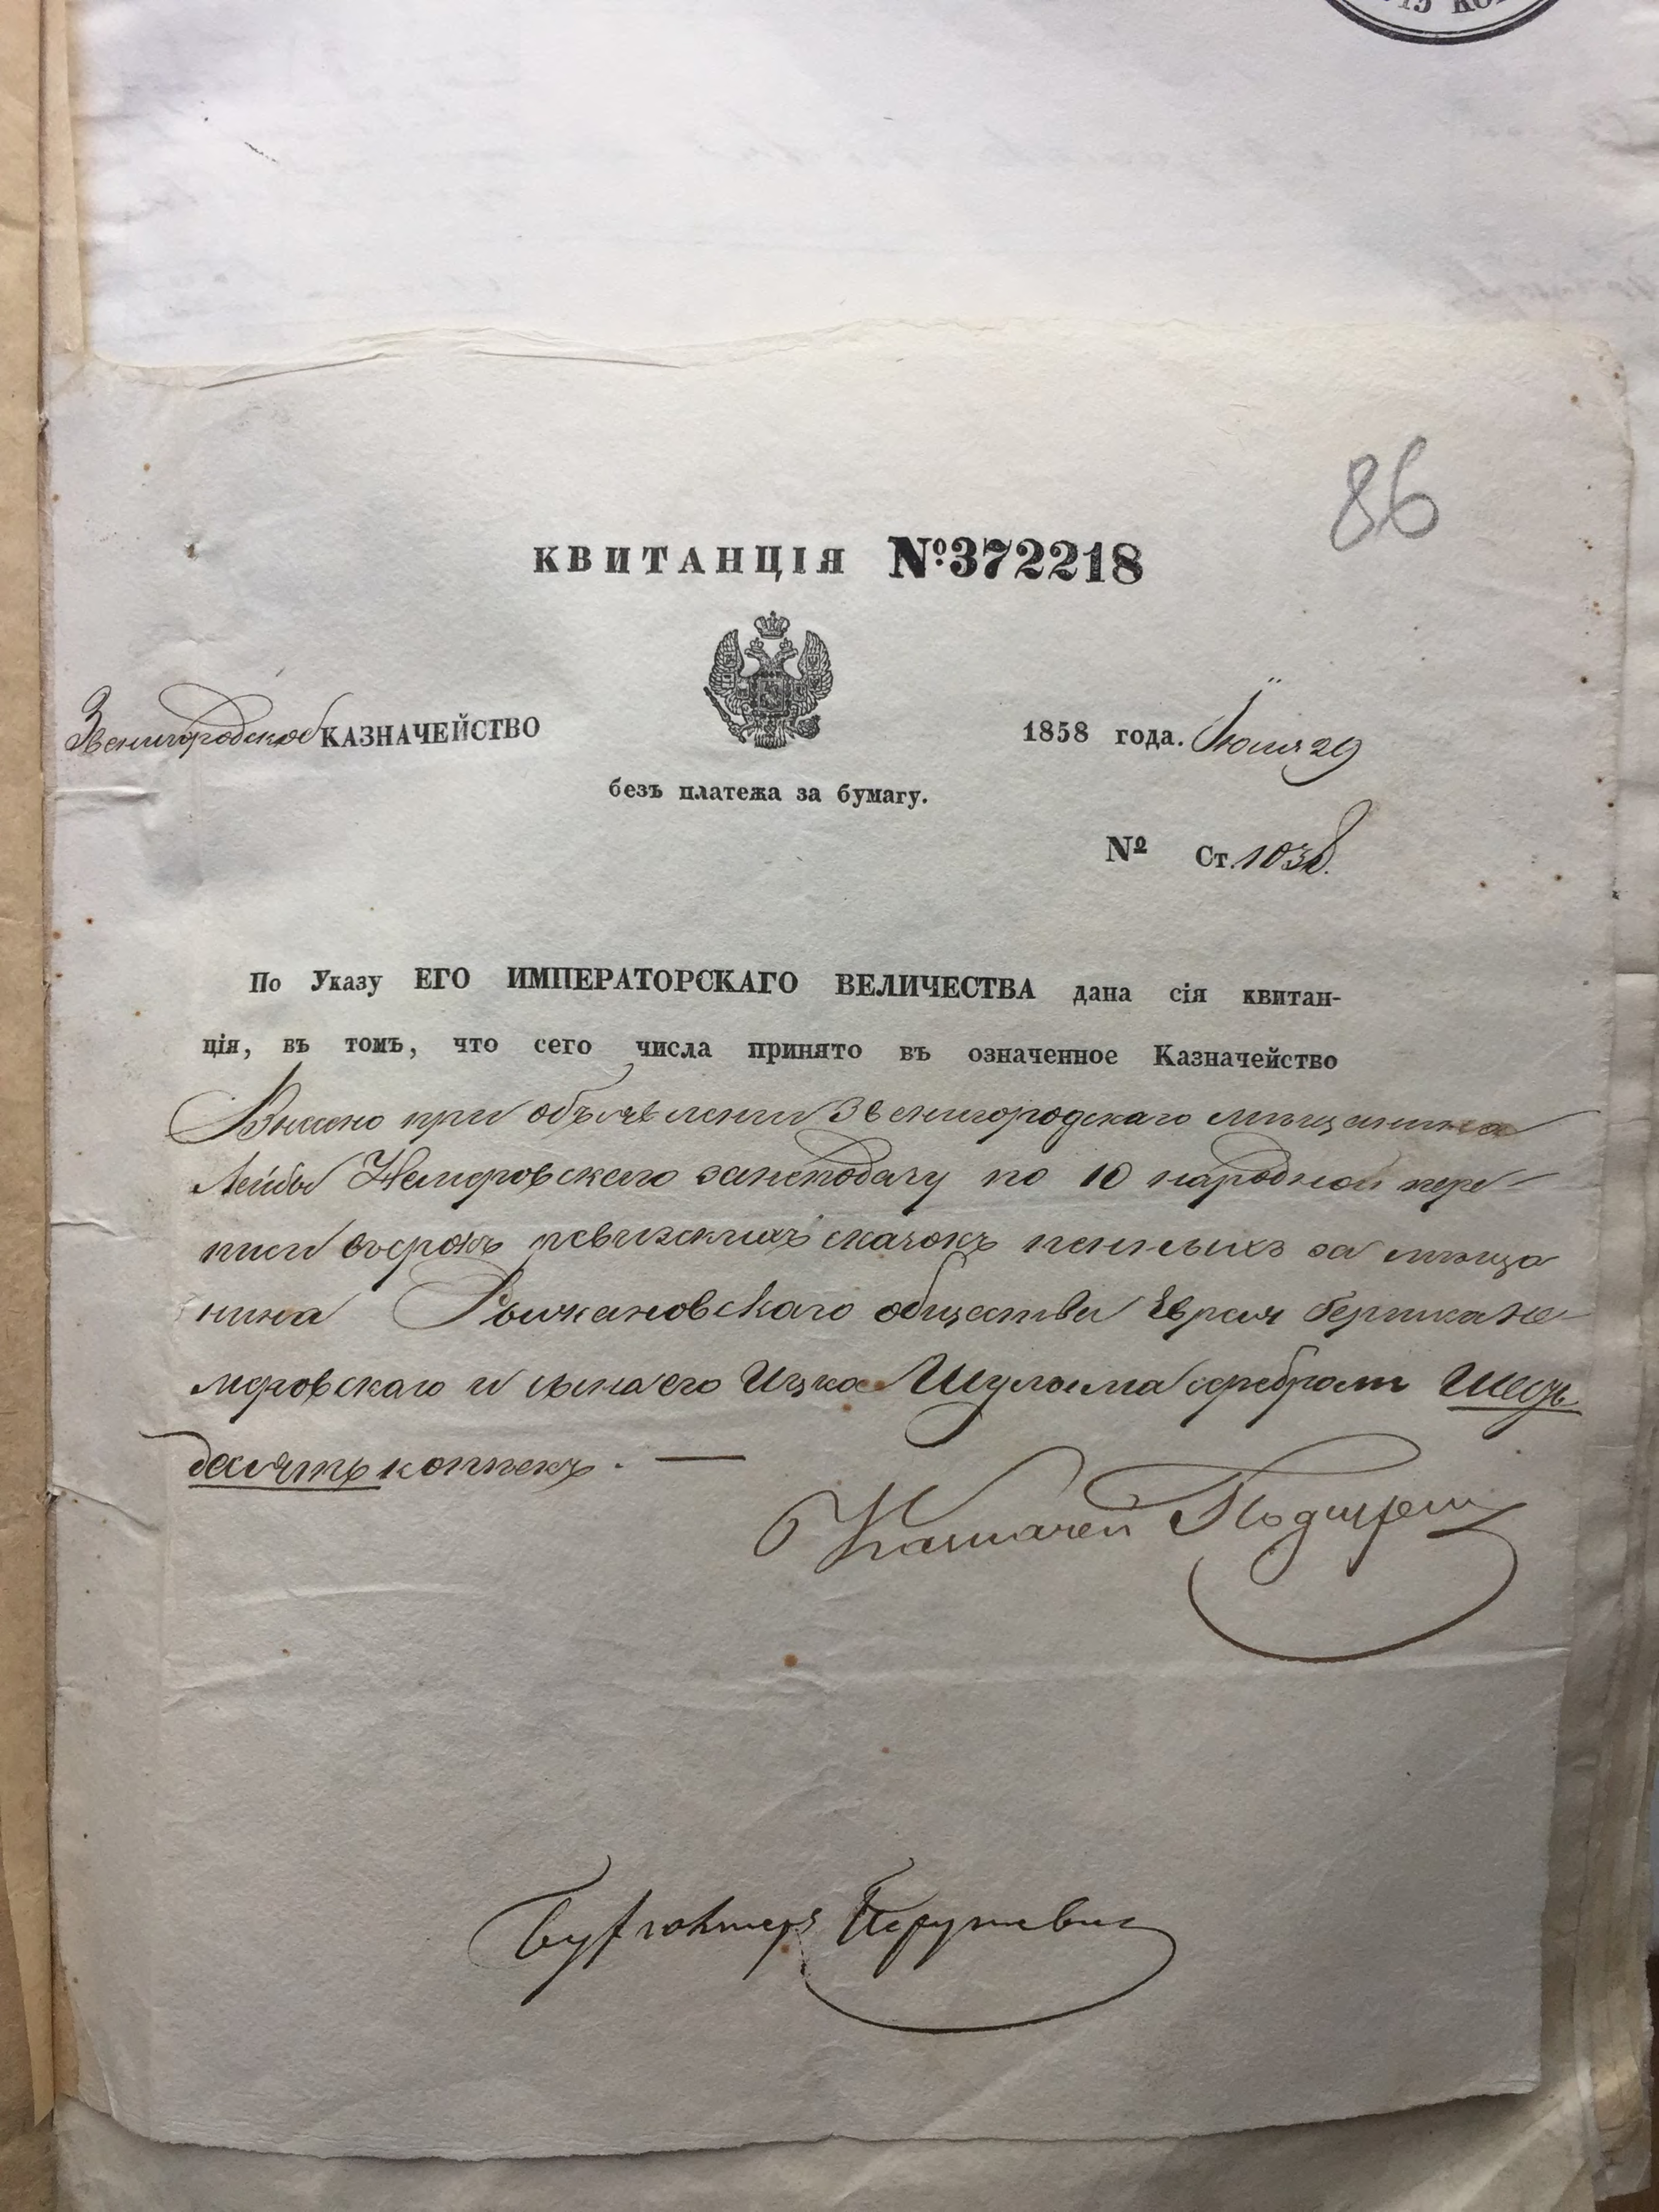 86
КВИТАНЦІЯ №372218
Звенигородское КАЗНАЧЕЙСТВО
1858 года. Іюля 29
безъ платежа за бумагу.
№ Ст. 1038.
По Указу ЕГО ИМПЕРАТОРСКАГО ВЕЛИЧЕСТВА дана сія квитан-
ція, въ томъ, что сего числа принято въ означенное Казначейство
Внесено при объявленіи Звенигородскаго мѣщанина
Лейбы Немеровскаго занеподачу по 10 народной пере-
писи въсрокъ ревизскихъ сказокъ пенныхъ за мѣща
нина общества Еврея Немеровскаго
и сына его Ицка Шулима серебромъ шесть
десять копѣекъ. —
Казначей
Бухгалтеръ